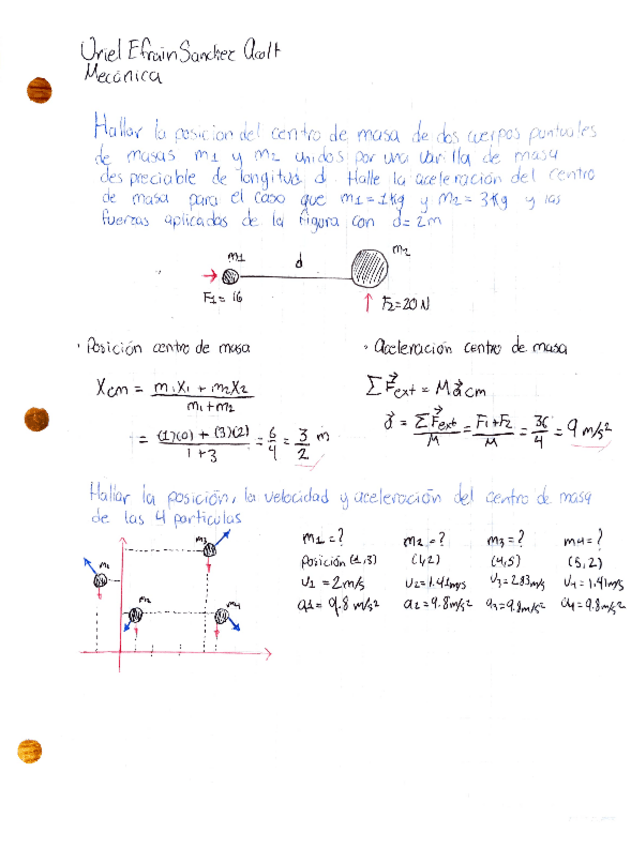 Uriel Efrain Sanchez Acolt
Mecánica
Hallar la posicion del centro de masa de dos cuerpos puntuales
de masas m1 y m2 unidos por una varilla de masa
despreciable de longitud d. Halle la aceleración del centro
de masa para el caso que m1=1kg y m2=3kg y las
fuerzas aplicadas de la figura con d=2m
m1 d m2
F1=16 F2=20 N
· Posición centro de masa
Xcm = m1X1 + m2X2 / m1+m2
= (1)(0) + (3)(2) / 1+3 = 6/4 = 3/2 m
· Aceleración centro de masa
∑F⃗ext = Ma⃗cm
a⃗ = ∑F⃗ext / M = F1+F2 / M = 36/4 = 9 m/s²
Hallar la posición, la velocidad y aceleración del centro de masa
de las 4 particulas
m1 m2 m3 m4
m1=? m2=? m3=? m4=?
Posición (1,3) (1,2) (4,5) (5,2)
v1=2m/s v2=1.41m/s v3=2.83m/s v4=1.41m/s
a1=9.8 m/s² a2=9.8m/s² a3=9.8m/s² a4=9.8m/s²